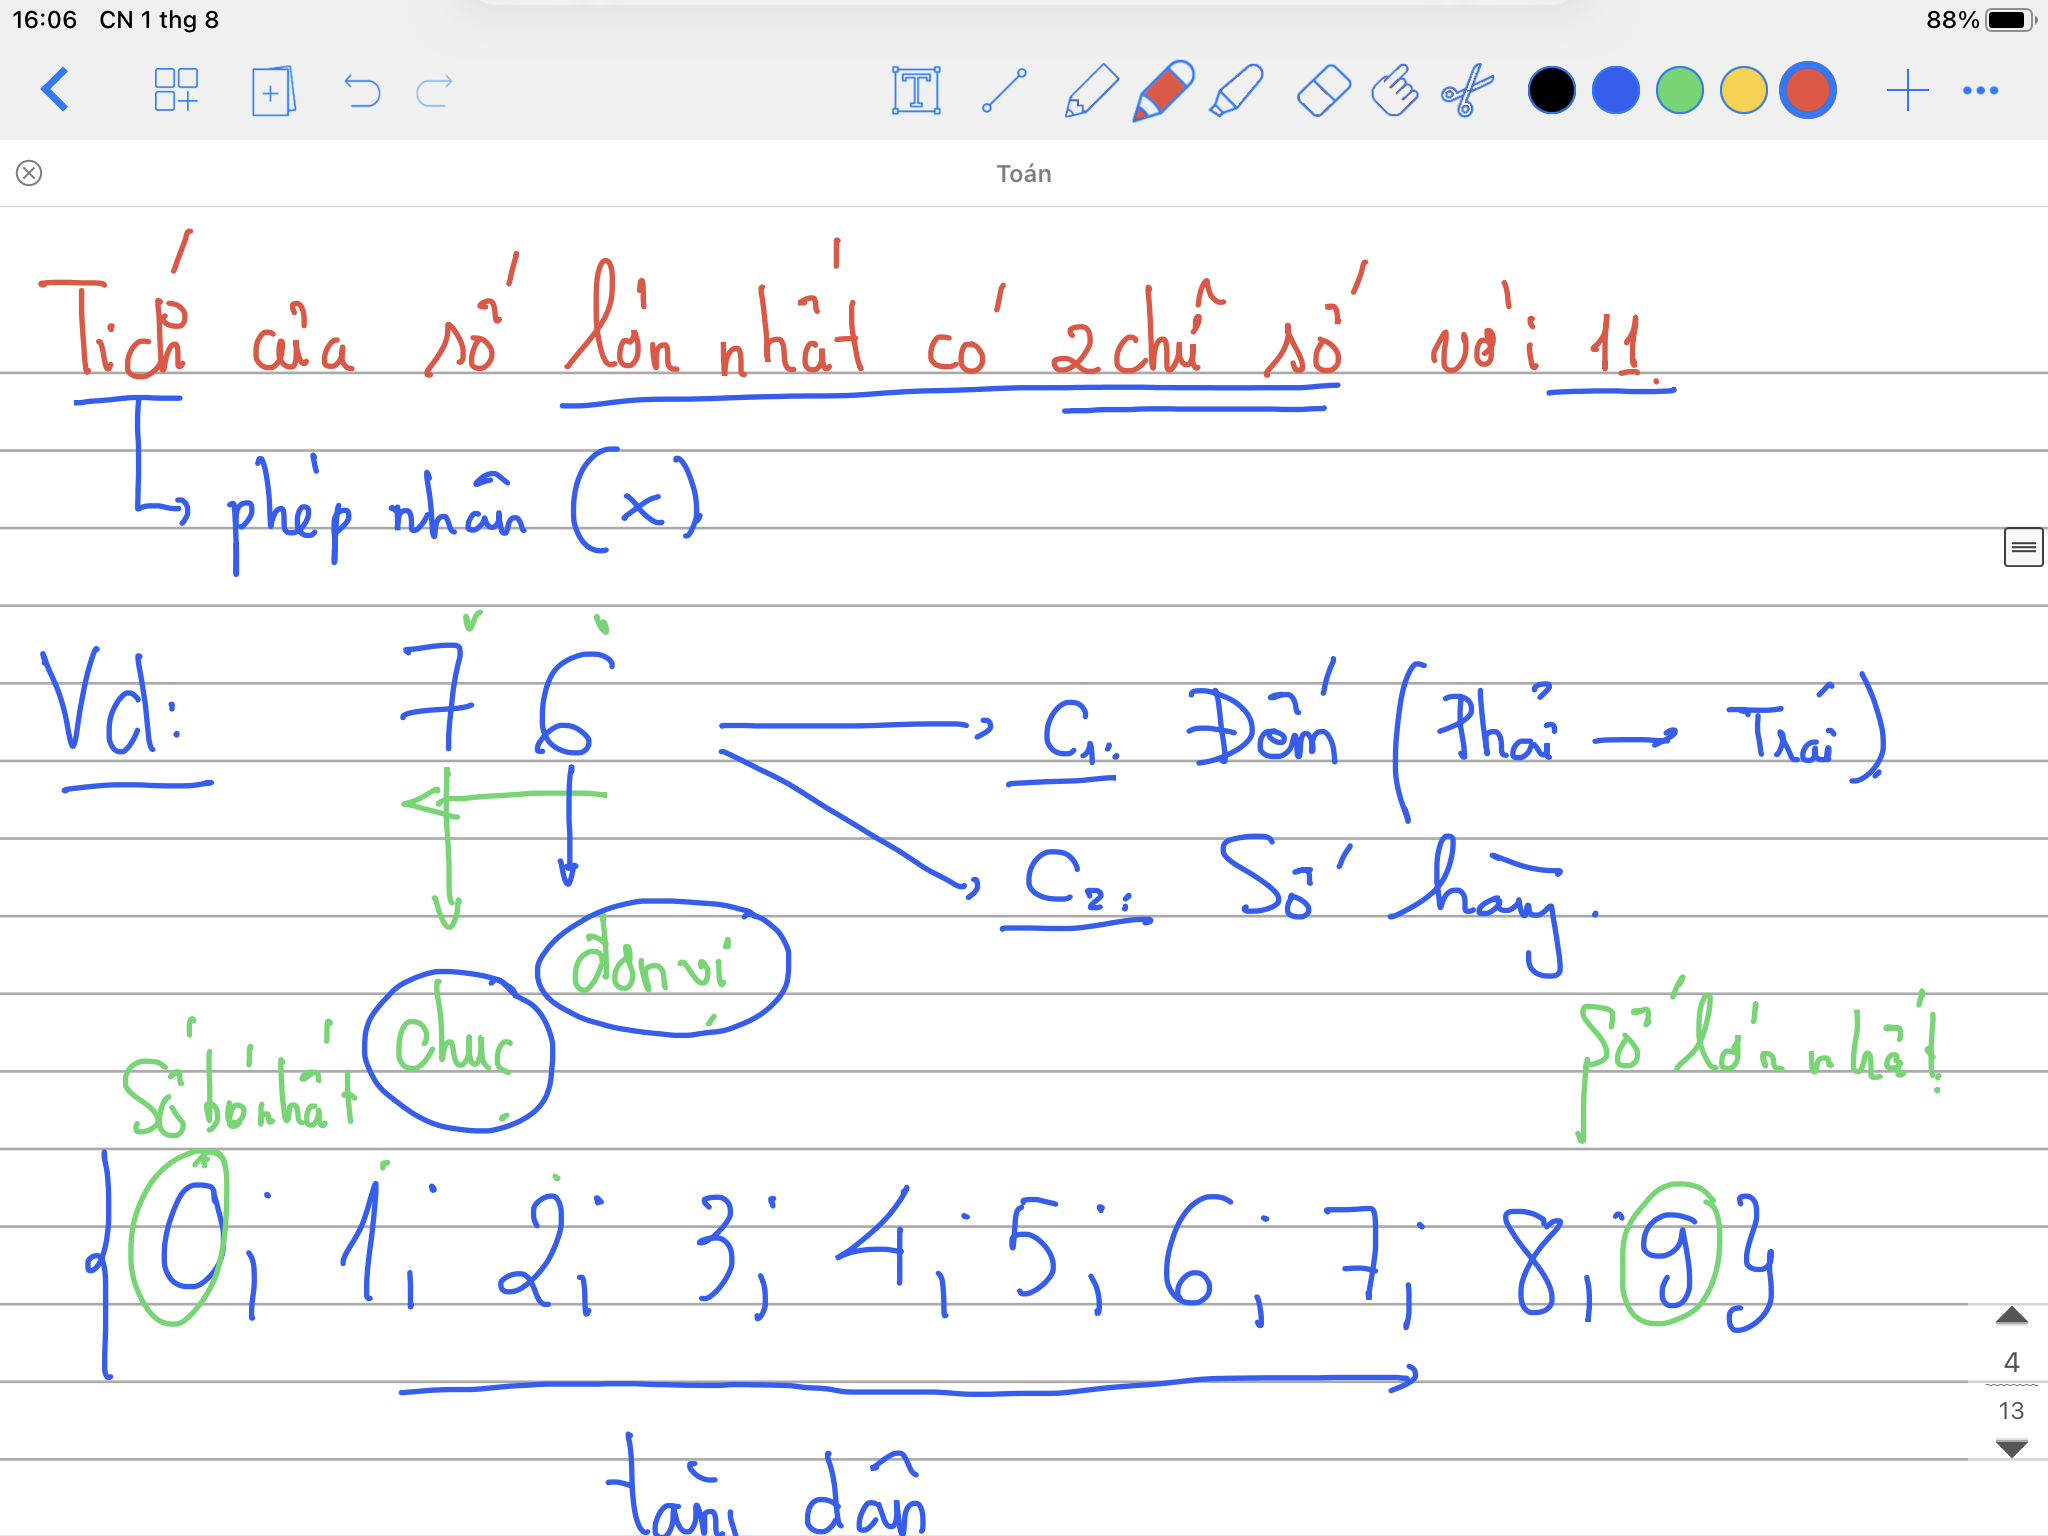 16:06 CN 1 thg 8 88%
Toán
Tích của số lớn nhất có 2 chữ số với 11.
phép nhân (x)
Vd: 76 C1: Đếm (Phải → Trái)
C2: Số hàng.
đơn vị
chục
Số bé nhất
Số lớn nhất
{0; 1; 2; 3; 4; 5; 6; 7; 8; 9}
tăng dần
4
13